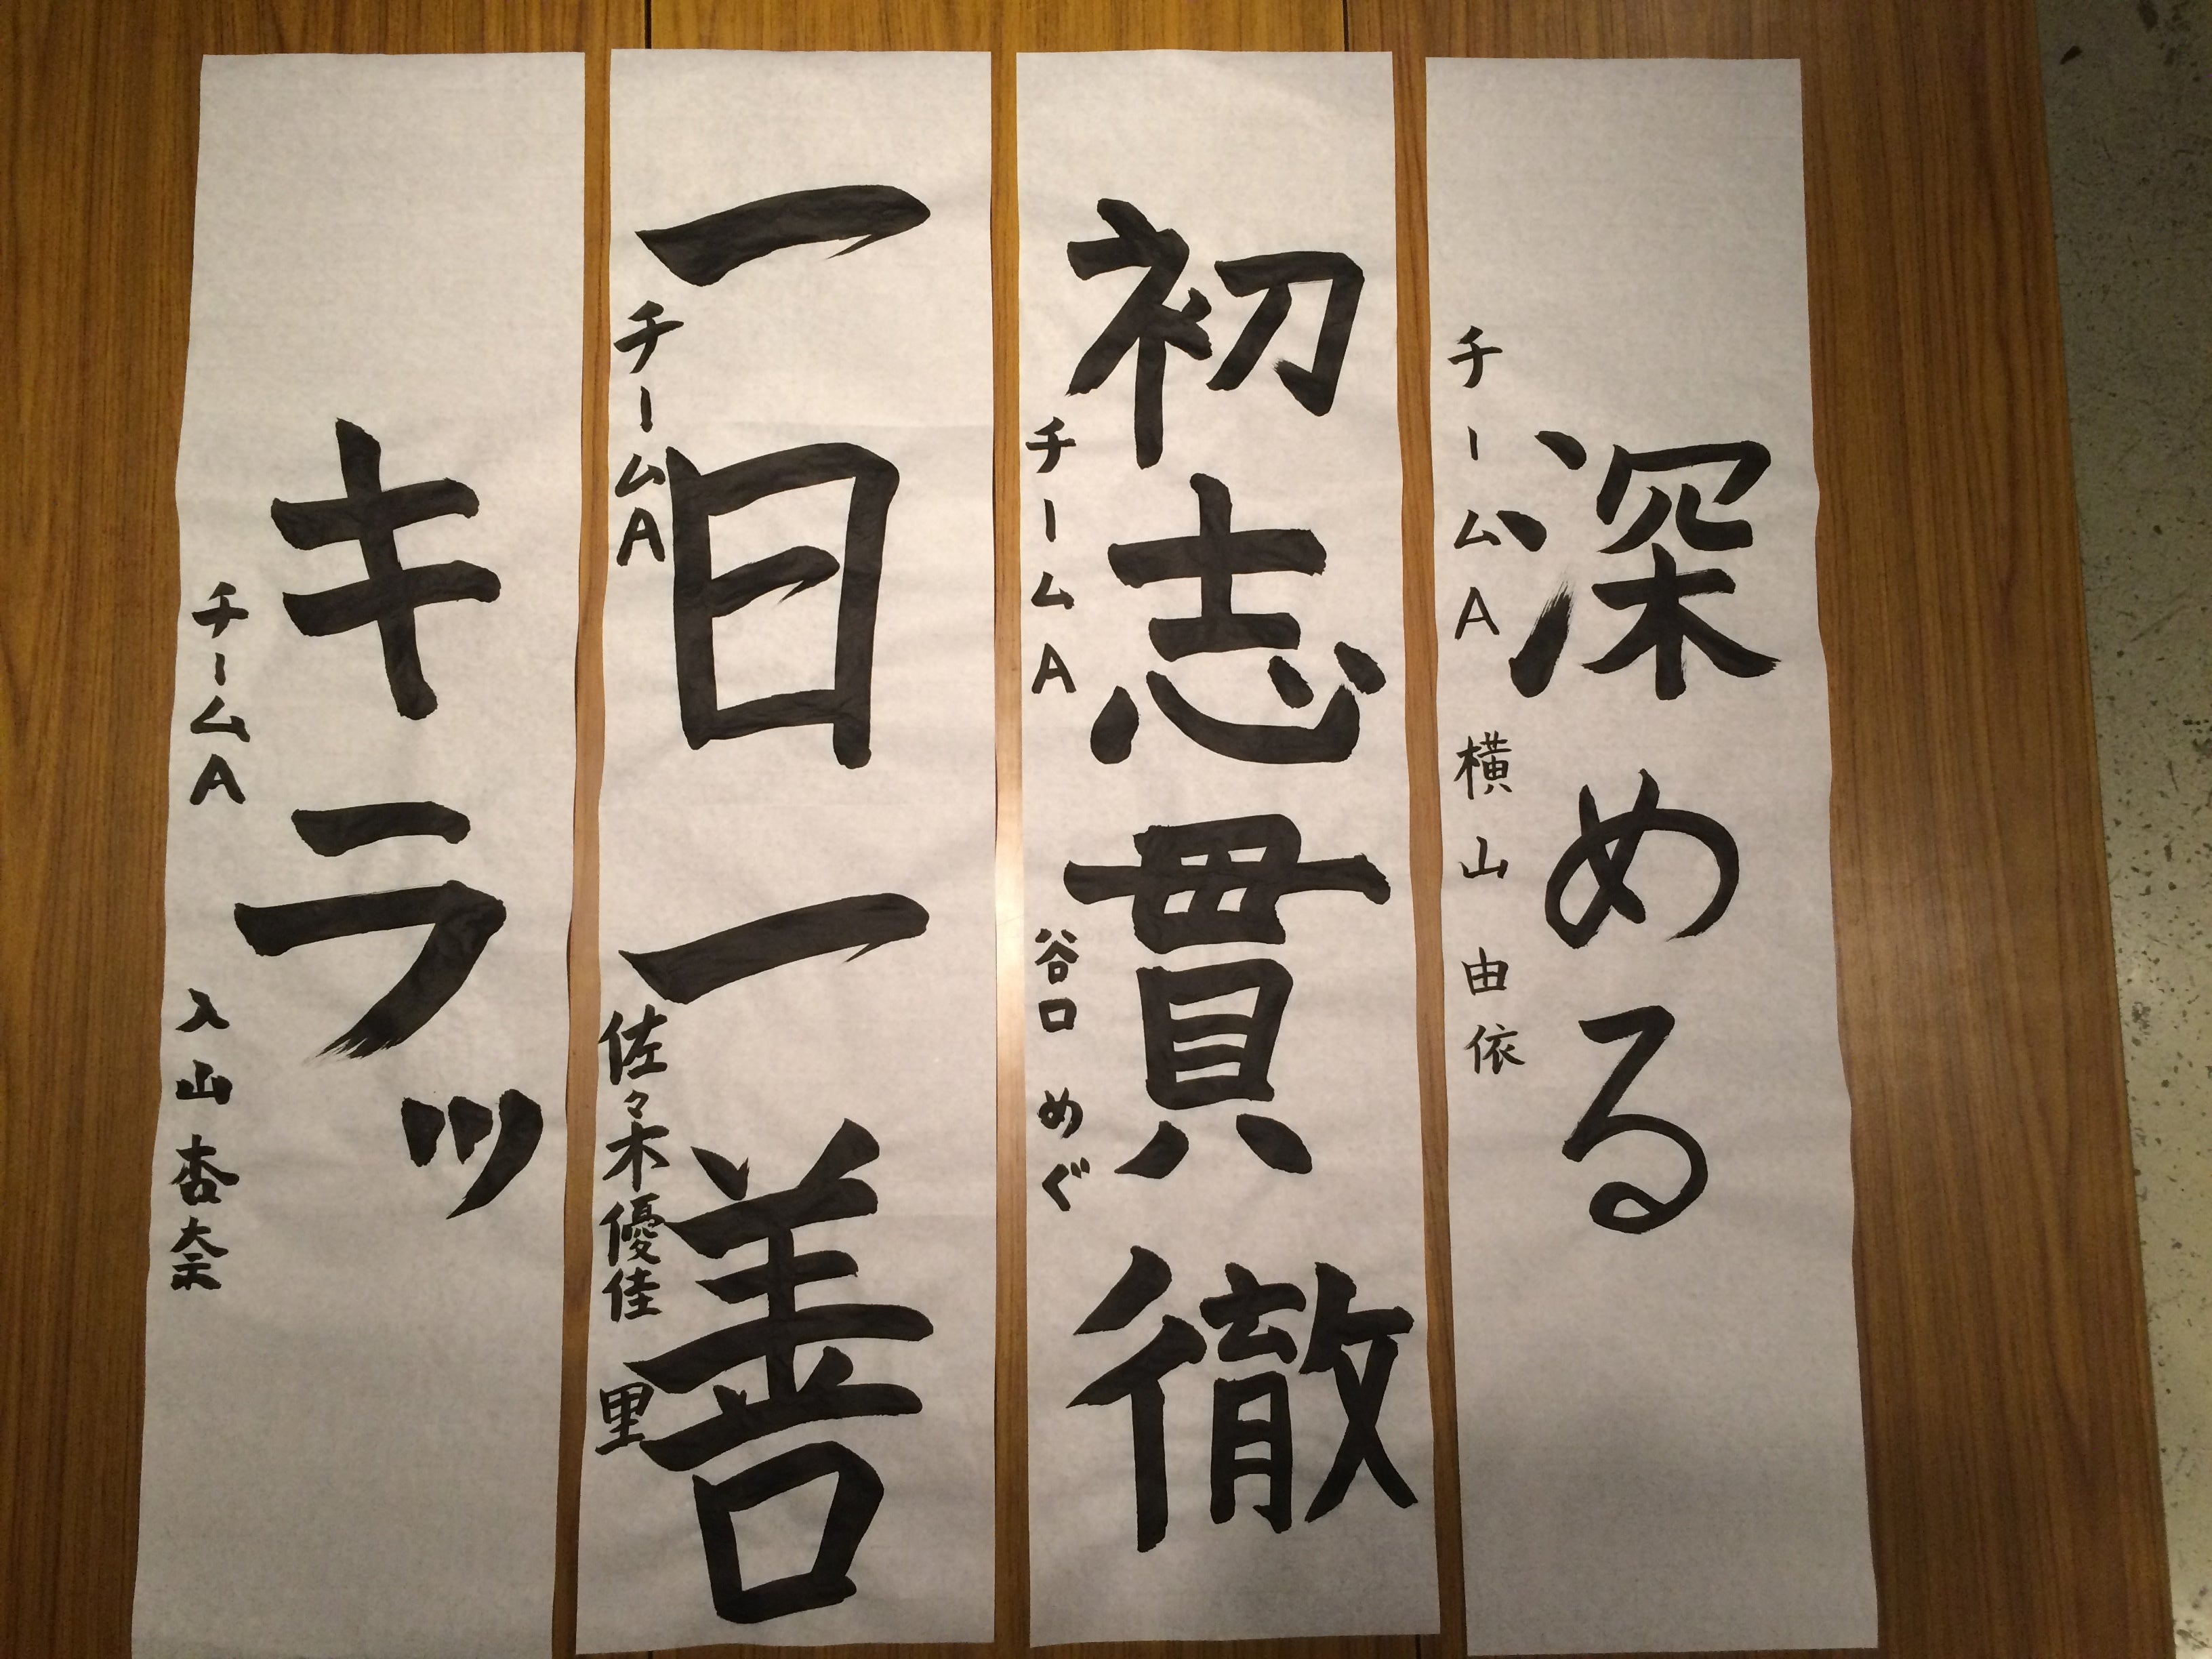 深める
チームA 横山由依
初志貫徹
チームA 谷口めぐ
一日一善
チームA 佐々木優佳里
キラッ
チームA 入山杏奈